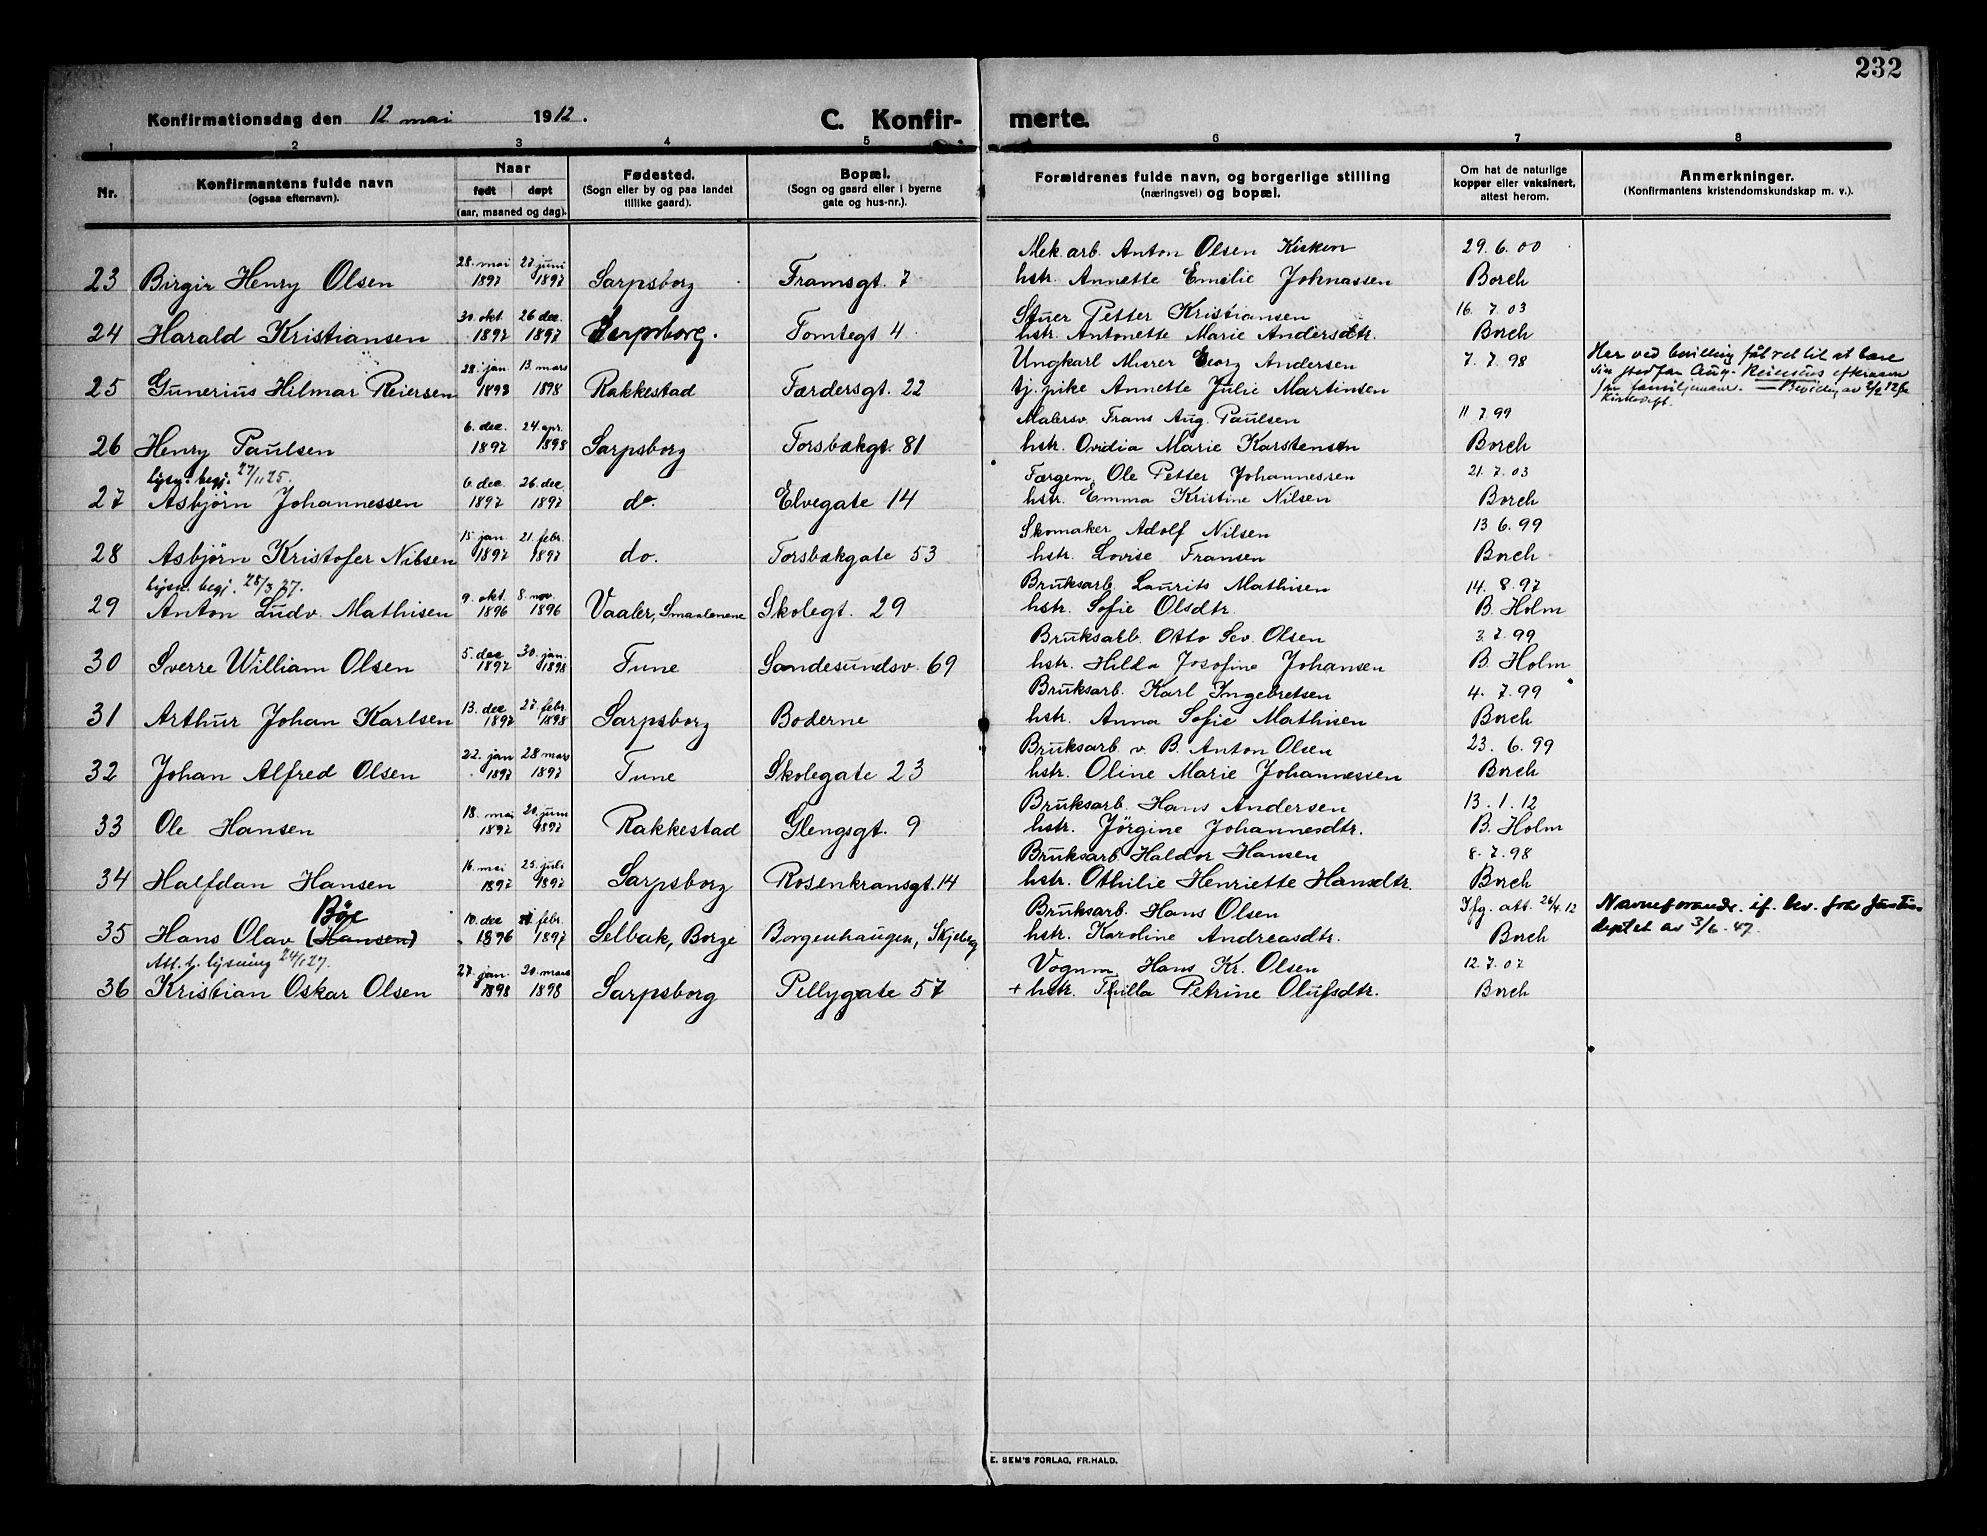 232
Konfirmationsdag den 12 mai 1912.
C. Konfir- merte.
1 2 3 4 5 6 7 8
Nr.
Konfirmantens fulde navn
(ogsaa efternavn).
Naar
født døpt
(aar, maaned og dag).
Fødested.
(Sogn eller by og paa landet
tillike gaard).
Bopæl.
(Sogn og gaard eller i byerne
gate og hus-nr.).
Forældrenes fulde navn, og borgerlige stilling
(næringsvei) og bopæl.
Om hat de naturlige
kopper eller vaksinert,
attest herom.
Anmerkninger.
(Konfirmantens kristendomskundskap m. v.).
28. mai 27. juni Mek. arb. Anton Olsen Kirken 29. 6. 00
23 Birgir Henry Olsen 1897 1897 Sarpsborg Framsgt. 7 hstr. Annette Emilie Johnassen Borch
30. okt. 26 dec. Stuer Petter Kristiansen 16. 7. 03
24 Harald Kristiansen 1897 1897 Sarpsborg. Tomtegt 4 hstr. Antonette Marie Andersdtr. Borch
28. jan. 13. mars Ungkarl Murer Georg Andersen 7. 7. 98 Har ved bevilling fåt ret til at bære
25 Gunerius Hilmar Reiersen 1898 1898 Rakkestad Færdersgt. 22 tj. pike Annette Julie Martinsen Aug. Reiersens efternavn
Kirkedept.
6. dec. 24. apr. Malersv. Frans Aug. Paulsen 11 7. 99
26 Henry Paulsen 1897 1898 Sarpsborg Torsbækgt. 81 hstr. Ovidia Marie Karstensen Borch
lysn. begj. 27/11 25. 6. dec. 26. dec. Færgem. Ole Petter Johannessen 21. 7. 03
27 Asbjörn Johannessen 1897 1897 do. Elvegate 14 hstr. Emma Kristine Nilsen Borch
15. jan. 21. febr. Skomaker Adolf Nilsen 13 6. 99
28 Asbjörn Kristofer Nilsen 1897 1897 do. Torsbækgate 53 hstr. Lovise Fransen Borch
lysn. begj. 28/3 27. 9. okt. 8. nov. Bruksarb. Laurits Mathisen 14. 8. 97
29 Anton Ludv. Mathisen 1896 1896 Vaaler, Smaalenene Skolegt. 29 hstr. Sofie Olsdtr. B. Holm
5. dec 30. jan. Bruksarb. Otto Sev. Olsen 3. 7. 99
30 Sverre William Olsen 1897 1898 Tune Sandesundsv. 69 hstr. Hilda Josofine Johansen B. Holm
13. dec 27. febr. Bruksarb. Karl Ingebretsen 4. 7. 99
31 Arthur Johan Karlsen 1897 1898 Sarpsborg Boderne hstr. Anna Sofie Mathisen Borch
22. jan 28 mars Bruksarb. v. B. Anton Olsen 23. 6. 99
32 Johan Alfred Olsen 1897 1897 Tune Skolegate 23 hstr. Oline Marie Johannessen Borch
18. mai 20. juni Bruksarb. Hans Andersen 13. 1. 12
33 Ole Hansen 1897 1897 Rakkestad Glengsgt. 9 hstr. Jörgine Johannesdtr. B. Holm
16. mai 25. juli Bruksarb. Haldor Hansen 8. 7. 98
34 Halfdan Hansen 1897 1897 Sarpsborg Rosenkransgt. 14 hstr. Othilie Henriette Hansdtr. Borch
Böe 10. dec febr. Bruksarb. Hans Olsen Ifg. att. 26/4. 12 Navneforandr. if. bev. fra Justis-
35 Hans Olav (Hansen) 1896 1897 Selbak, Borge Borgenhaugen, Skjeberg hstr. Karoline Andreasdtr. Borch deptet av 3/6. 47.
Att. t. lysning 24/1 27. 27. jan. 20. mars Vognm. Hans Kr. Olsen 12. 7. 07
36 Kristian Oskar Olsen 1898 1898 Sarpsborg Pellygate 57 + hstr. Petrine Olufsdtr. Borch
E. SEM'S FORLAG, FR.HALD.